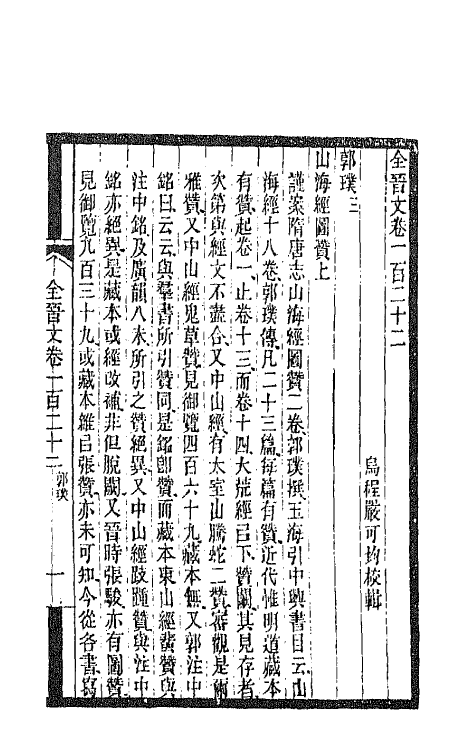 全晉文卷一百二十二
烏程嚴可均校輯
郭璞三
山海經圖贊上
謹案隋唐志山海經圖贊二卷郭璞撰玉海引中興書目云山
海經十八卷郭璞傳凡二十三篇每篇有贊近代惟明道藏本
有贊起卷一止卷十三而卷十四大荒經已下贊闕其見存者
次第與經文不盡合又中山經有太室山騰蛇二贊審觀是爾
雅贊又中山經鬼草贊見御覽四百六十九藏本無又郭注中
銘曰云云與羣書所引贊同是銘卽贊而藏本東山經䖪贊與
注中銘及廣韻八未所引之贊絕異又中山經跂踵贊與注中
銘亦絕異是藏本或經改補非但脫闕又晉時張駿亦有圖贊
見御覽九百三十九或藏本雜㠯張贊亦未可知今從各書寫
全晉文卷一百二十二 郭璞 一